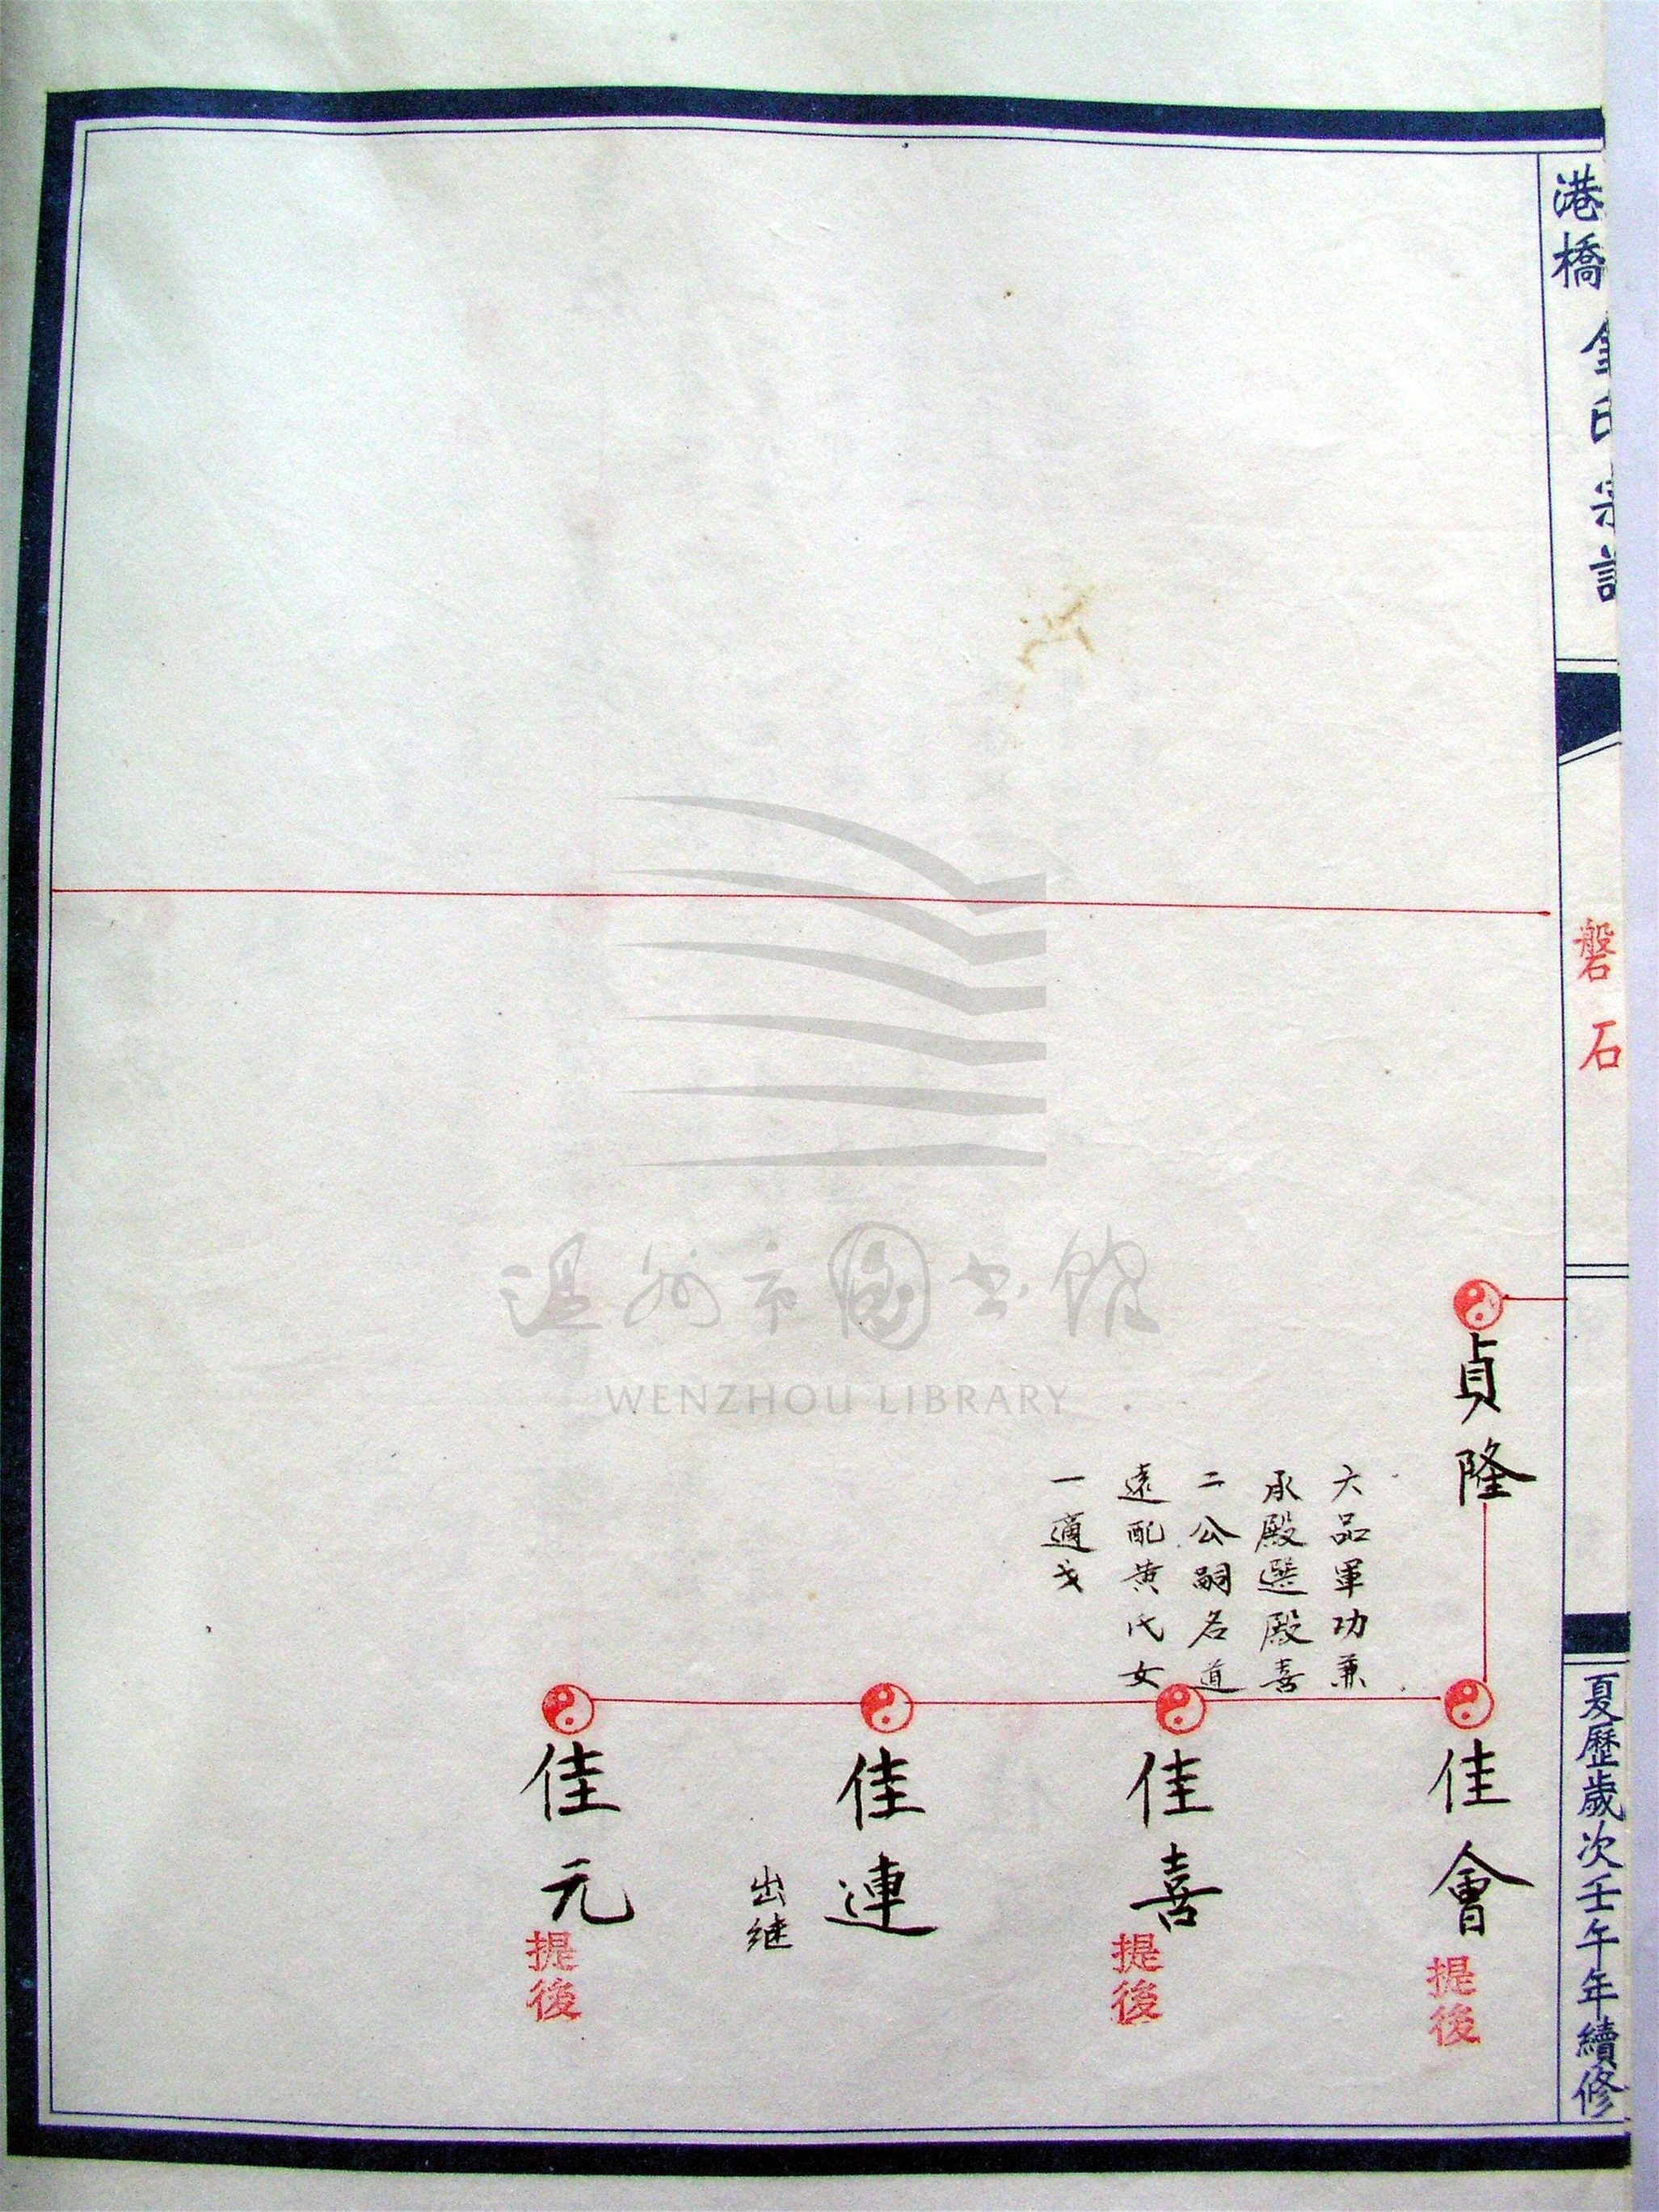 港橋金氏宗譜
磐石
夏歷歲次壬午年續修
貞隆
六品軍功兼
承殿選殿喜
二公嗣名道
遠配黄氏女
一適戈
佳會
提後
佳喜
提後
佳連
出継
佳元
提後
温州市圖書館
WENZHOU LIBRARY